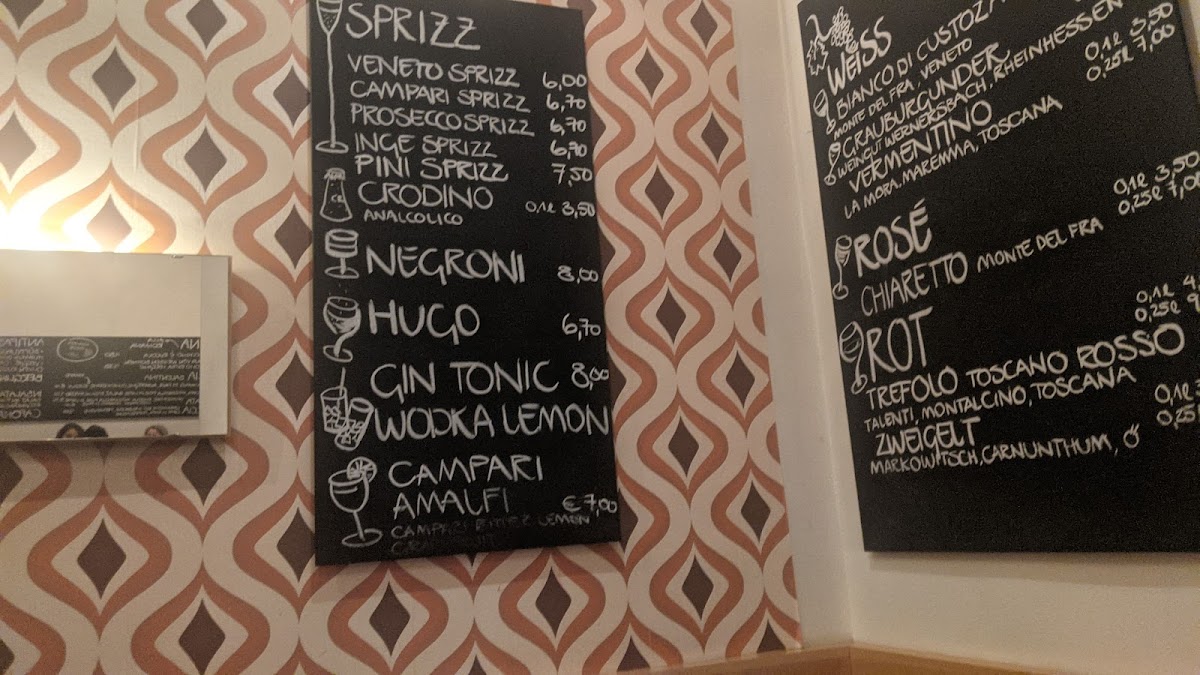 SPRIZZ
VENETO SPRIZZ 6,00
CAMPARI SPRIZZ 6,70
PROSECCO SPRIZZ 6,70
INGE SPRIZZ 6,70
PINI SPRIZZ 7,50
CRODINO 0,1l 3,50
ANALCOLICO
NEGRONI 8,00
HUGO 6,70
GIN TONIC 8,00
WODKA LEMON
CAMPARI
AMALFI € 7,00
CAMPARI BITTER LEMON
WEISS
BIANCO DI CUSTOZA
MONTE DEL FRA, VENETO
GRAUBURGUNDER 0,1l 3,50
WEINGUT WERNERSBACH, RHEINHESSEN 0,25l 7,00
VERMENTINO
LA MORA, MAREMMA, TOSCANA
ROSÉ 0,1l 3,50
CHIARETTO MONTE DEL FRA 0,25l 7,00
ROT
TREFOLO TOSCANO ROSSO 0,1l
TALENTI, MONTALCINO, TOSCANA 0,25l
ZWEIGELT 0,1l
MARKOWITSCH, CARNUNTHUM, Ö 0,25